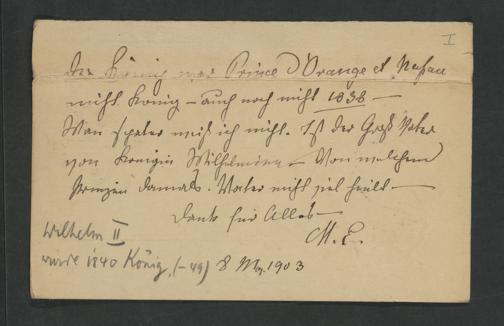 I
Der König war Prince d'Orange et Nassau
nicht König – auch noch nicht 1838 –
Wan später weiß ich nicht. Ist der Groß Vater
von Königin Wilhelmina – Von welchem
Prinzen damals. Vater nicht viel hielt –
Dank für Alles –
M. E.
8 May. 1903
Wilhelm II
wurde 1840 König, (– 49)